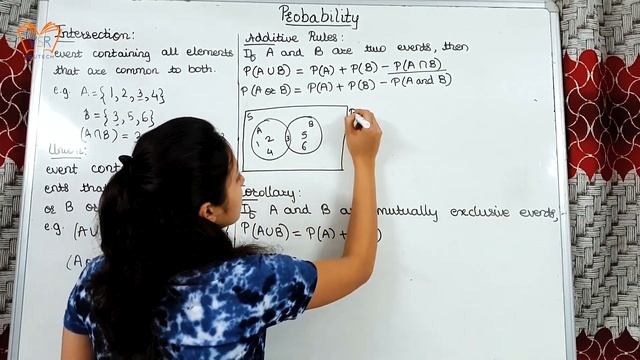 Probability
Intersection:
event containing all elements
that are common to both.
e.g. A = {1, 2, 3, 4}
B = {3, 5, 6}
(A∩B) = 3
event cont
ents tha
or B o
e.g. (A∪
Additive Rules:
If A and B are two events, then
P(A∪B) = P(A) + P(B) - P(A∩B)
P(A or B) = P(A) + P(B) - P(A and B)
S
A B
1 2 4 3 5 6
Corollary:
If A and B a mutually exclusive events,
P(A∪B) = P(A) + )